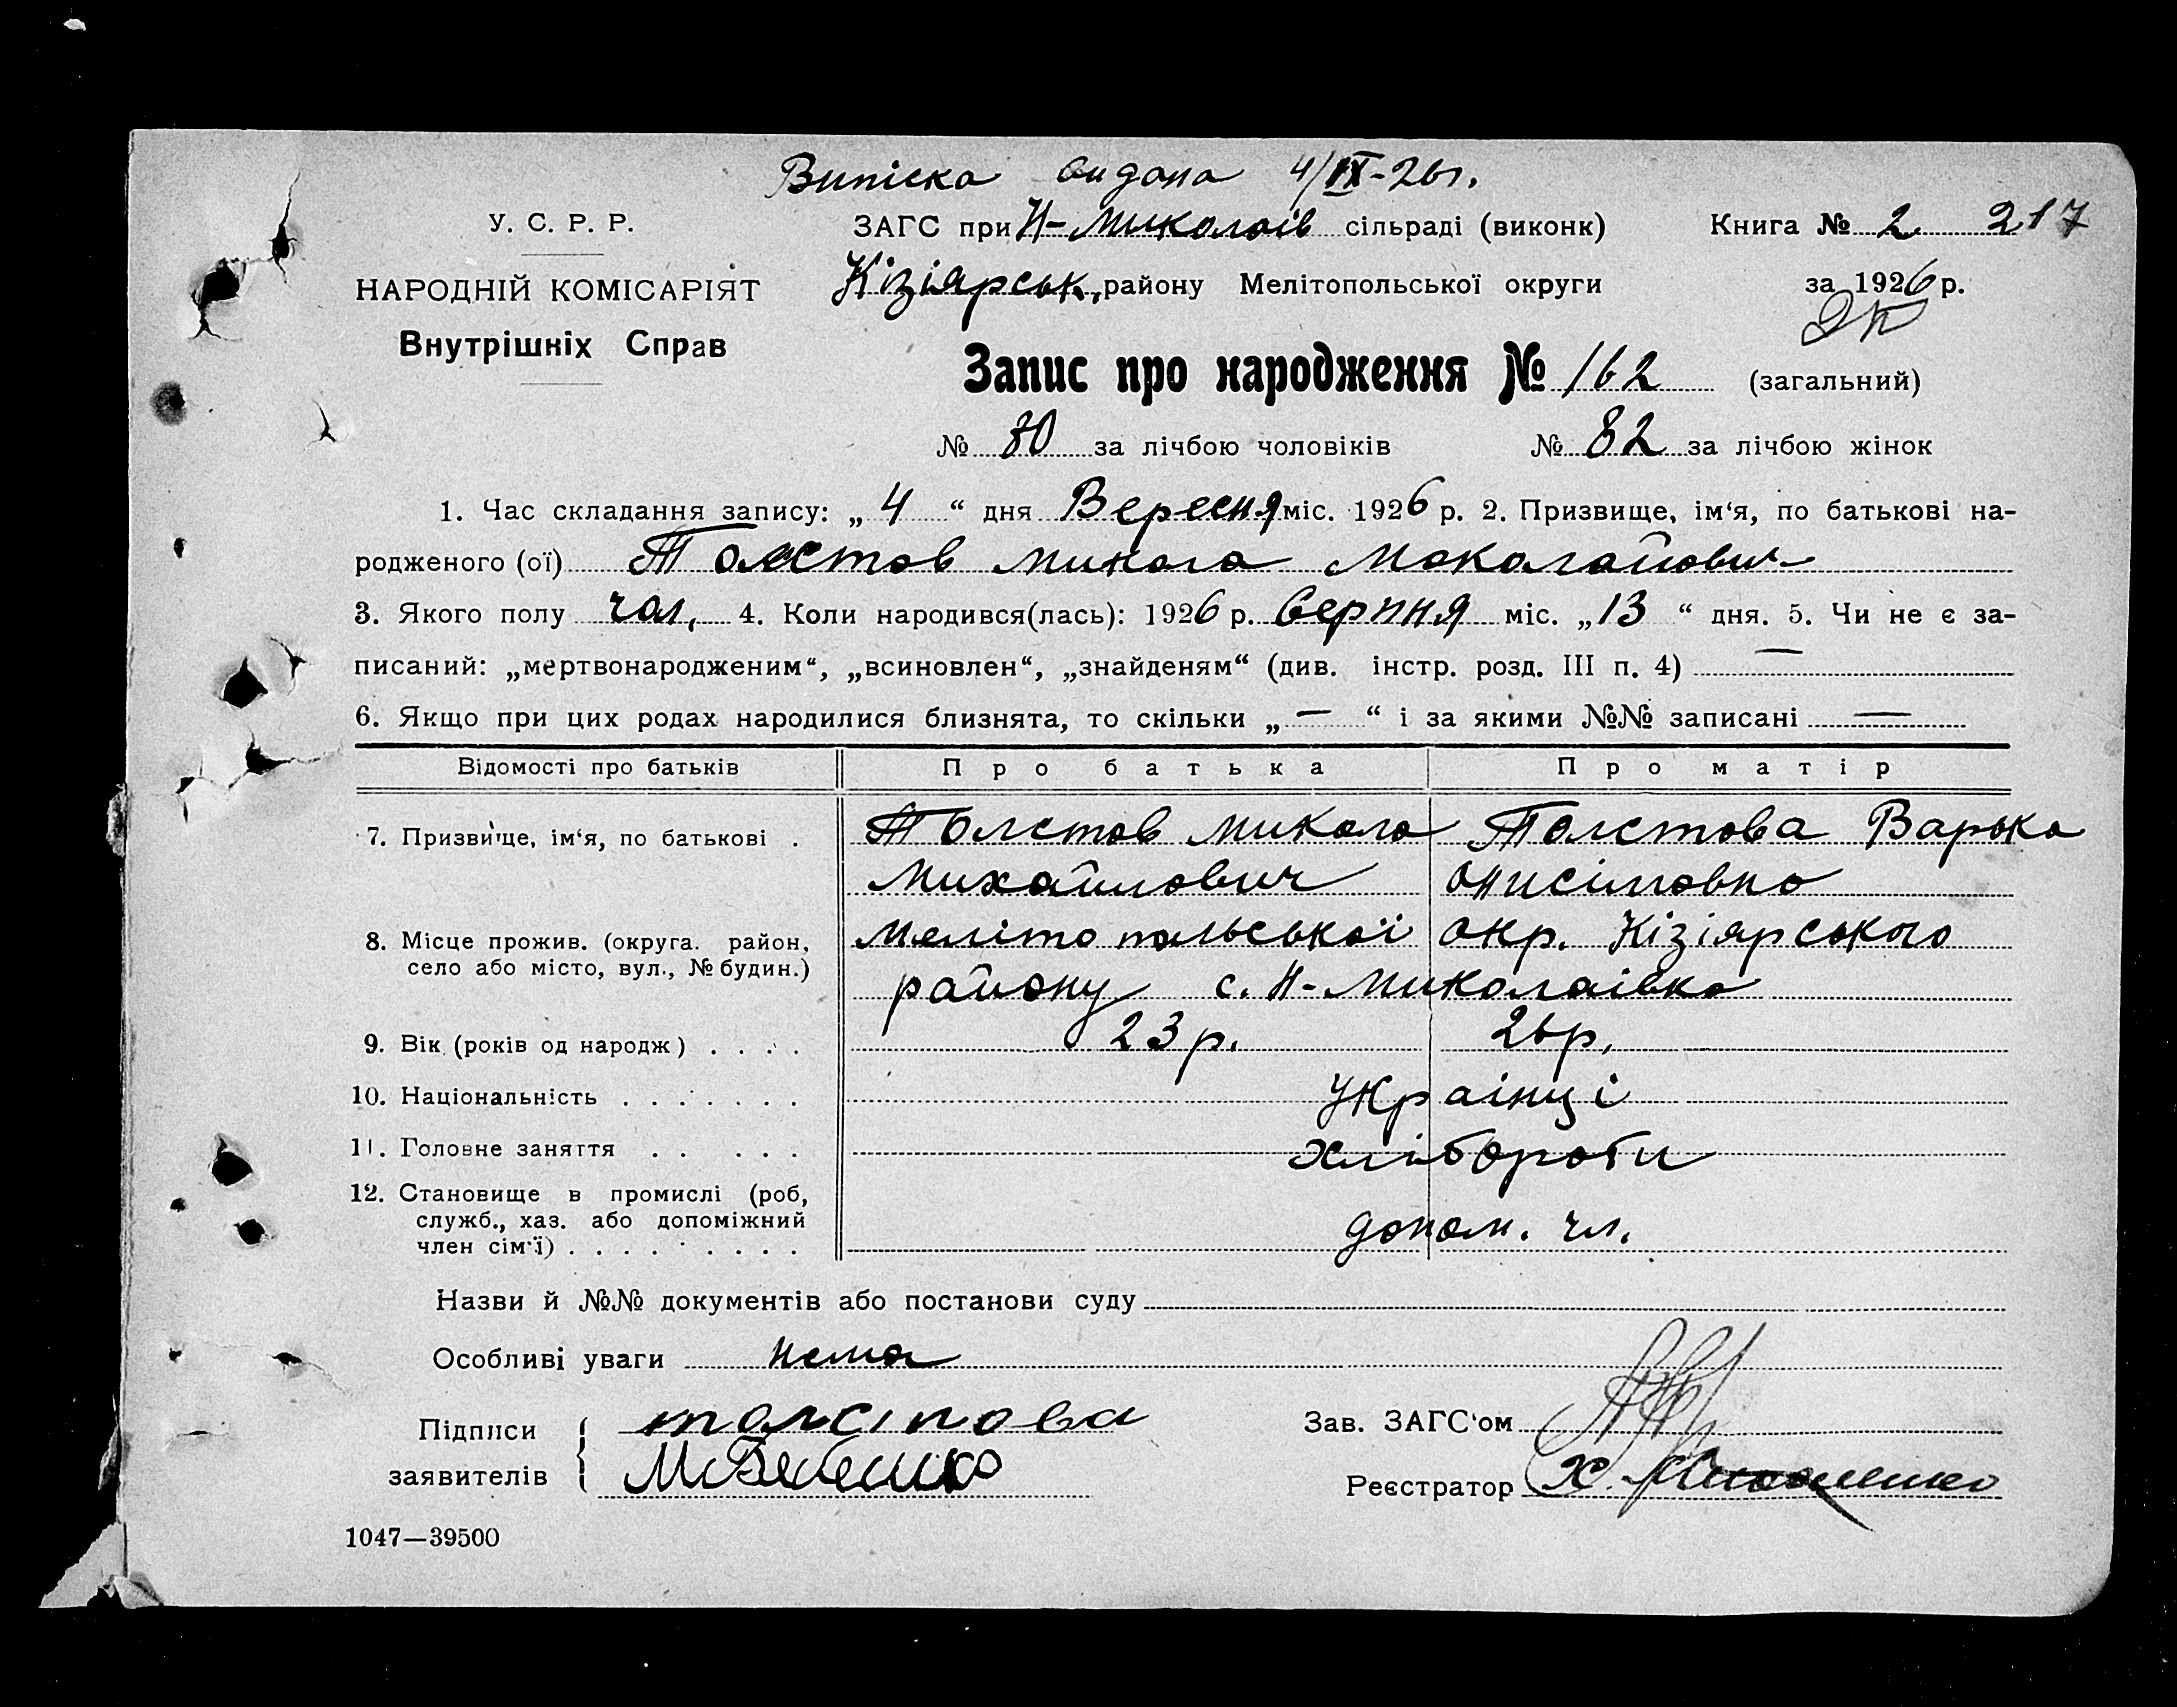 Виписка видана 4/IX-26 г.
У. С. Р. Р.
ЗАГС при Н-Миколаїв сільраді (виконк)
Книга № 2 217
НАРОДНІЙ КОМІСАРІЯТ
Кізіярськ. району Мелітопольської округи
за 1926 р.
Внутрішніх Справ
Запис про народження № 162 (загальний)
№ 80 за лічбою чоловіків № 82 за лічбою жінок
1. Час складання запису: „ 4 “ дня Вересня міс. 1926 р. 2. Призвище, ім‘я, по батькові на-
родженого (ої) Толстов Микола Миколайович
3. Якого полу чол. 4. Коли народився(лась): 1926 р. Серпня міс. „13 “ дня. 5. Чи не є за-
писаний: „мертвонародженим“, „всиновлен“, „знайденям“ (див. інстр. розд. III п. 4) —
6. Якщо при цих родах народилися близнята, то скільки „ — “ і за якими №№ записані —
Відомості про батьків Про батька Про матір
7. Призвище, ім‘я, по батькові . Толстов Микола Толстова Варька
Михайлович Онисімовна
8. Місце прожив. (округа. район, Мелітопольської окр. Кізіярського
село або місто, вул., № будин.)
району с. Н-Миколаівка
9. Вік (років од народж) . . . . 23 р. 26 р.
10. Національність . . . . . . . Українці
11. Головне заняття . . . . . Хлібороби
12. Становище в промислі (роб,
служб., хаз. або допоміжний
допом. чл.
член сім‘ї) . . . . . . . . .
Назви й №№ документів або постанови суду
Особливі уваги нема
Підписи толстова
Зав. ЗАГС‘ом
заявителів
Реєстратор
1047—39500